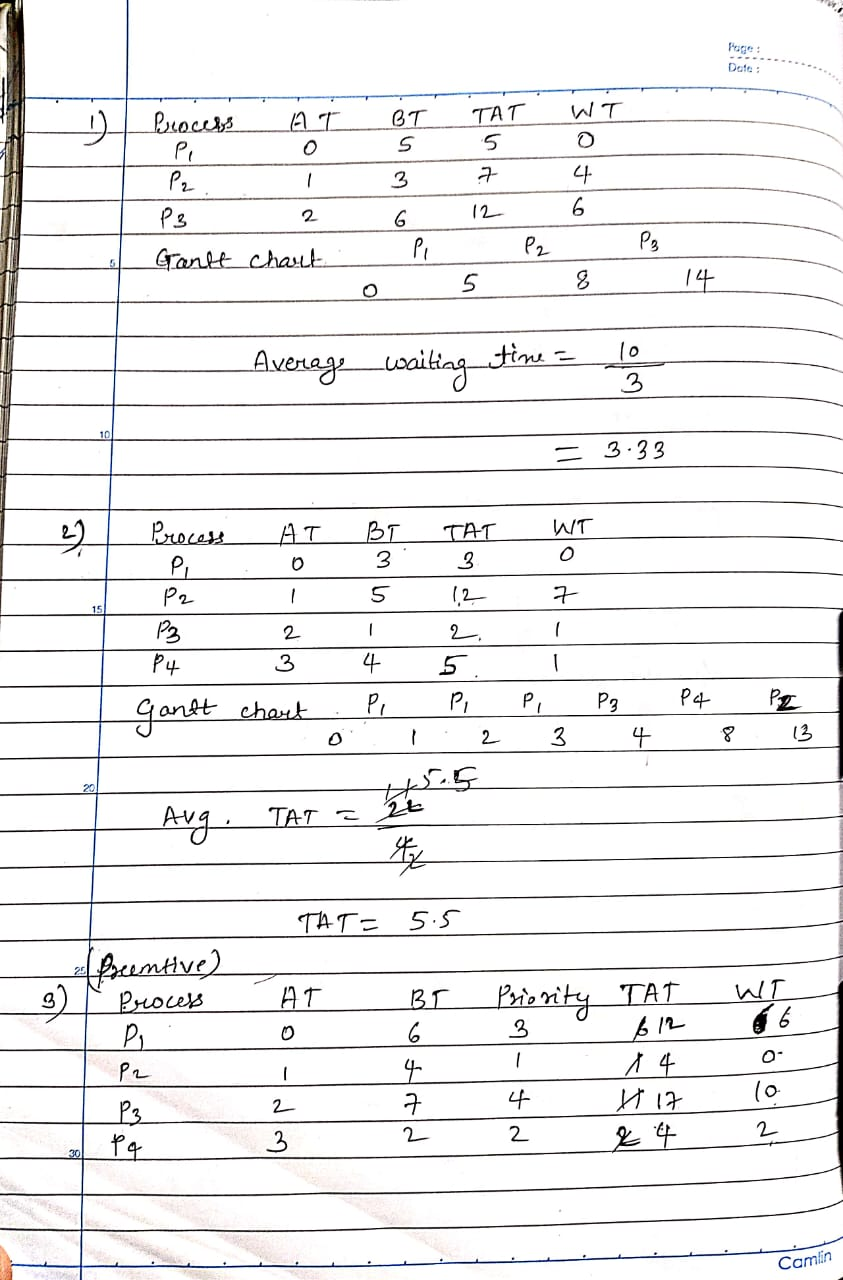 Page :
Date :
1) Process AT BT TAT WT
P1 0 5 5 0
P2 1 3 7 4
P3 2 6 12 6
5 Gantt chart P1 P2 P3
0 5 8 14
Average waiting time = 10
3
10
= 3.33
2) Process AT BT TAT WT
P1 0 3 3 0
15 P2 1 5 12 7
P3 2 1 2 1
P4 3 4 5 1
Gantt chart P1 P1 P1 P3 P4 P2
0 1 2 3 4 8 13
20 5.5
Avg. TAT = 22
4
TAT = 5.5
25 (Preemtive)
3) Process AT BT Priority TAT WT
P1 0 6 3 12 6
P2 1 4 1 4 0
P3 2 7 4 17 10
30 P4 3 2 2 4 2
Camlin